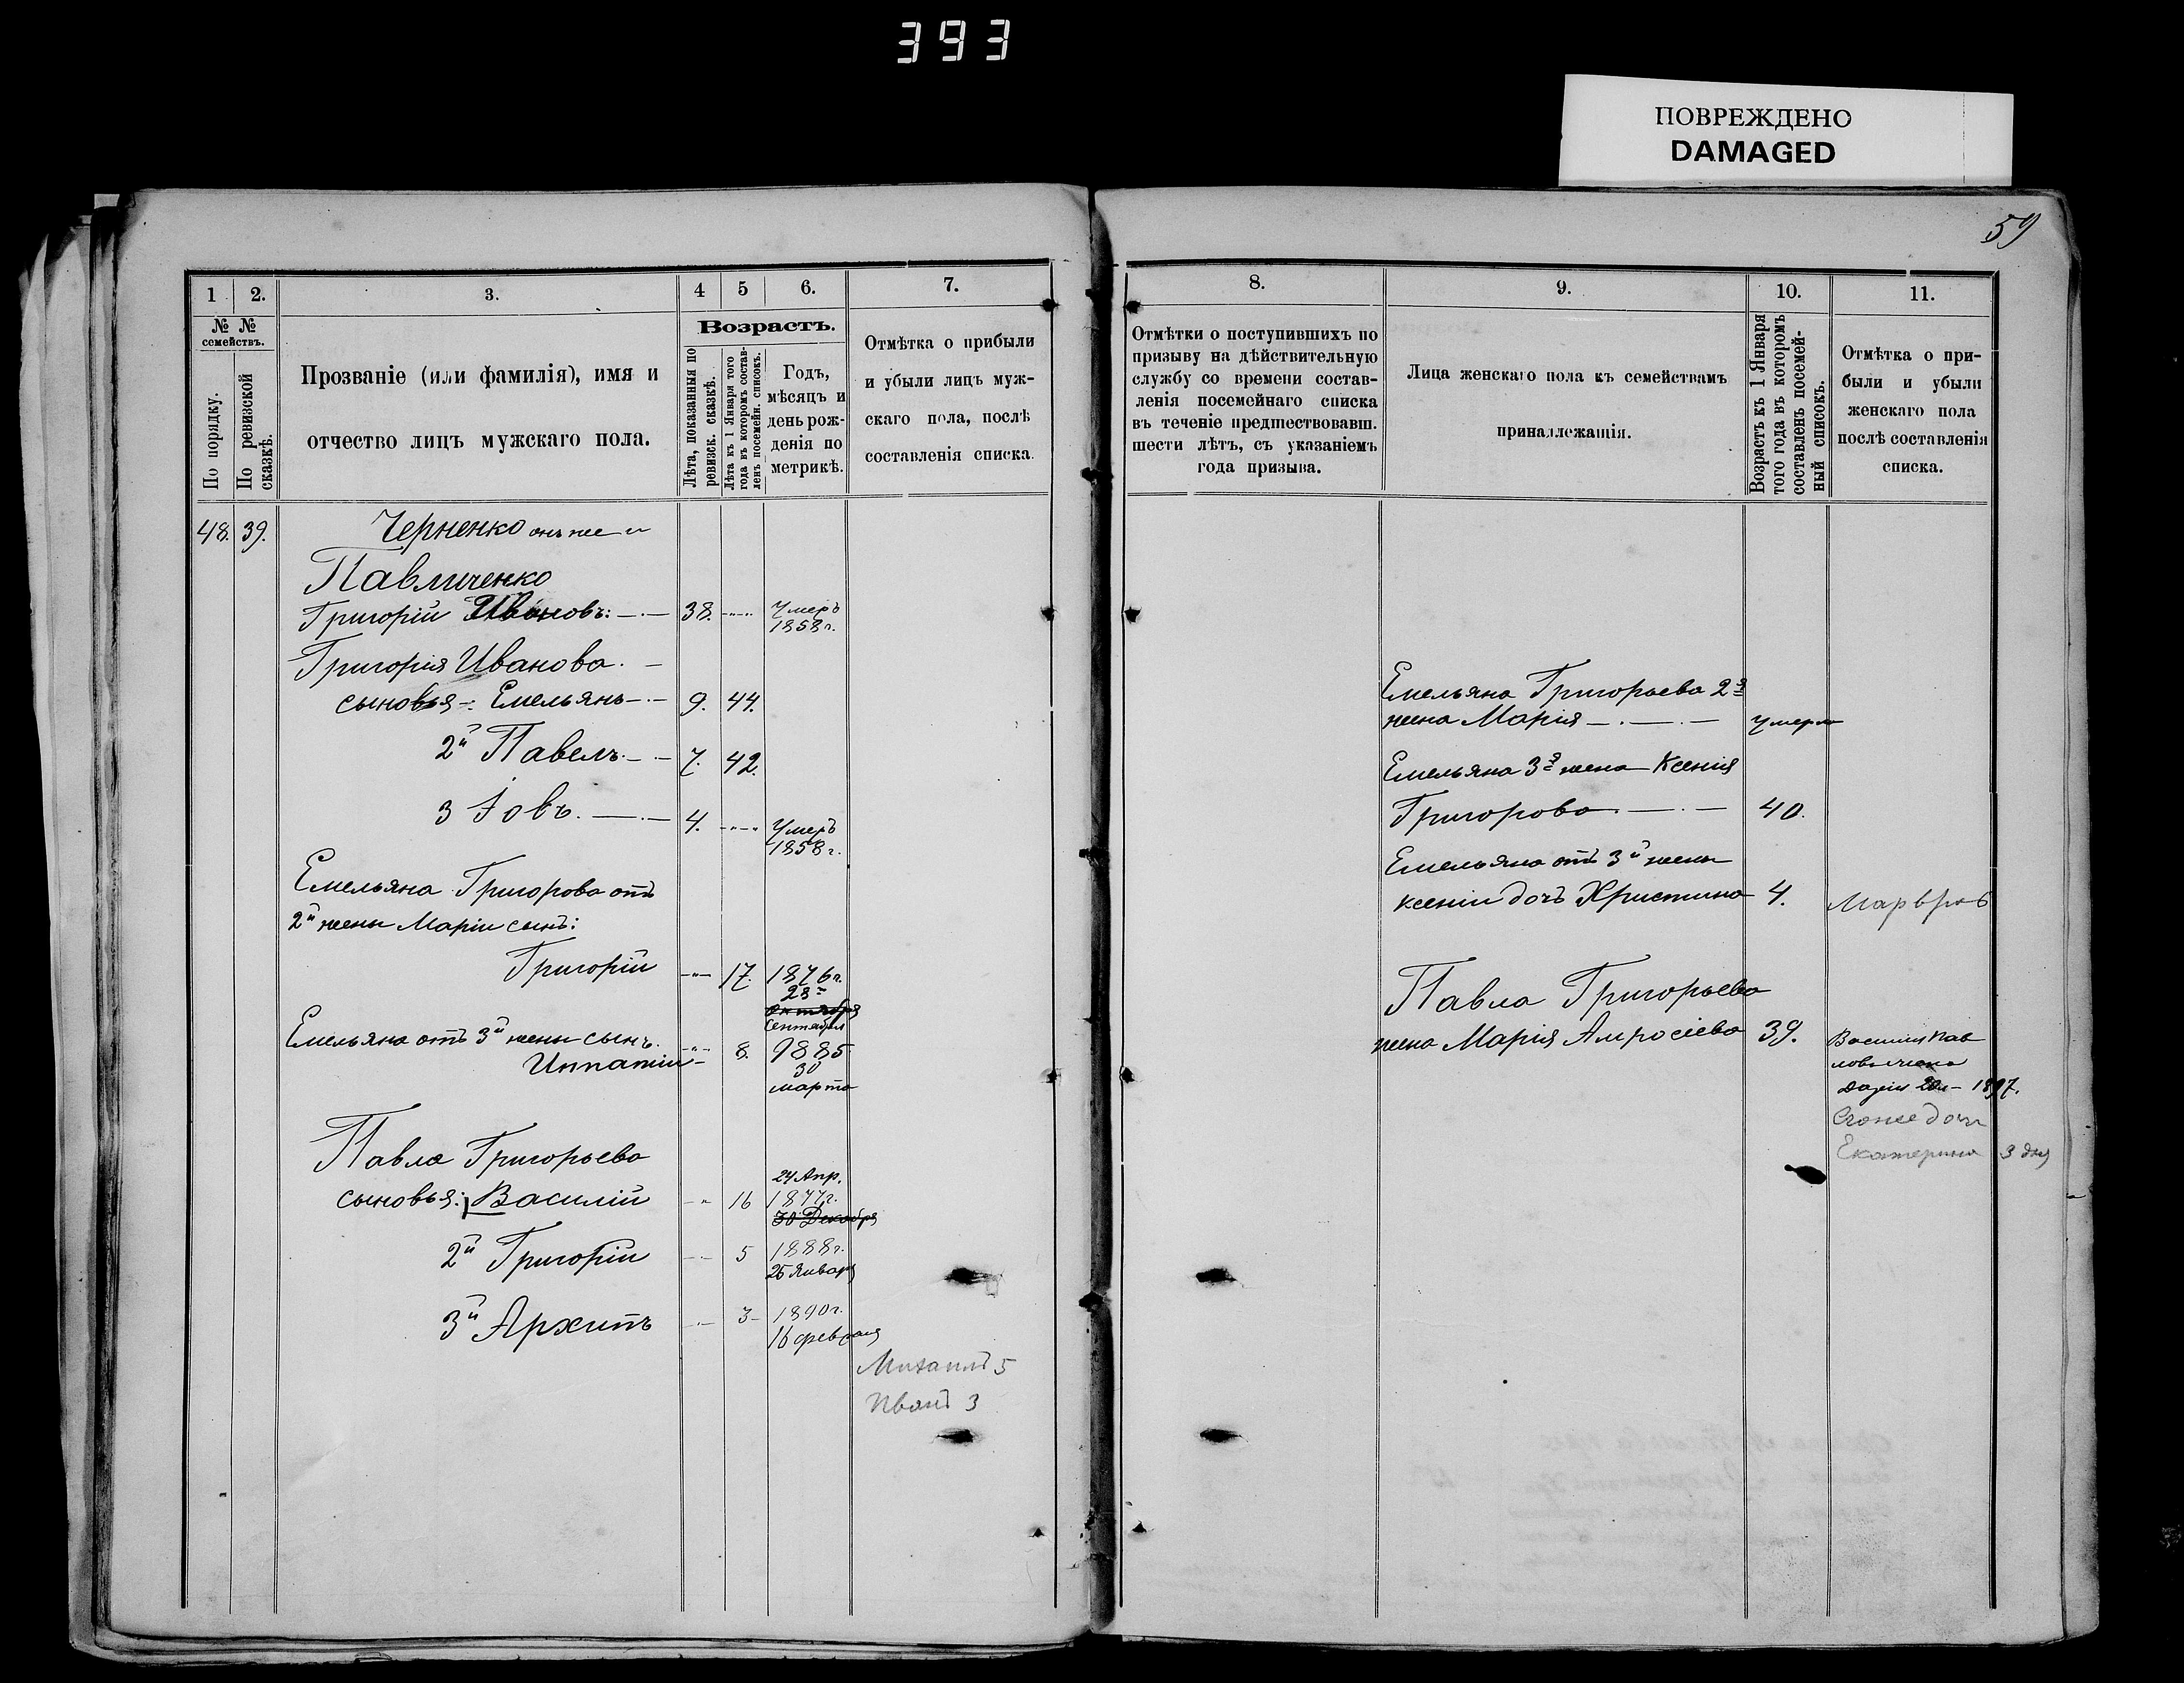 393
ПОВРЕЖДЕНО
DAMAGED
59
1
2.
3.
4
5
6.
7.
№ №
семействъ.
По порядку.
По ревизской
сказкѣ.
Прозваніе (или фамилія), имя и
отчество лицъ мужскаго пола.
Возрастъ.
Лѣта, показанныя по
ревизск. сказкѣ.
Лѣта къ 1 Января того
года въ которомъ состав-
ленъ посемейн. списокъ.
Годъ,
мѣсяцъ и
день рож-
денія по
метрикѣ.
Отмѣтка о прибыли
и убыли лицъ муж-
скаго пола, послѣ
составленія списка.
48. 39. Черненко онъ же и
Павличенко
Григорій Ивановъ: 38. Умеръ
1858 г.
Григорія Иванова.
сыновья: Емельянъ 9. 44.
2й Павелъ. 7. 42.
3 Іовъ. 4. Умеръ
1858 г.
Емельяна Григорова отъ
2й жены Маріи сынъ:
Григорій 17. 1876 г.
28
октября
Сентября
Емельяна отъ 3й жены сынъ.
Ипатій 8. 1885
30
марта
Павла Григорьева
24 Апр.
сыновья: Василій 16 1877 г.
30 Декабря
2й Григорій 5 1888 г.
25 Января
3й Архипъ 3 1890 г.
16 февраля
Михаилъ 5
Иванъ 3
8.
9.
10.
11.
Отмѣтки о поступившихъ по
призыву на дѣйствительную
службу со времени состав-
ленія посемейнаго списка
въ теченіе предшествовавш.
шести лѣтъ, съ указаніемъ
года призыва.
Лица женскаго пола къ семействамъ
принадлежащія.
Возрастъ къ 1 Января
того года въ которомъ
составленъ посемей-
ный списокъ.
Отмѣтка о при-
были и убыли
женскаго пола
послѣ составленія
списка.
Емельяна Григорьева 2я
жена Марія Умерла
Емельяна 3я жена Ксенія
Григорова 40.
Емельяна отъ 3й жены
Ксеніи дочь Христина 4.
Павла Григорьева
жена Марія Амросіева 39.
Василія Пав
лова жена
Дарія 20 л 1897.
Его же дочь
Екатерина 3 дня